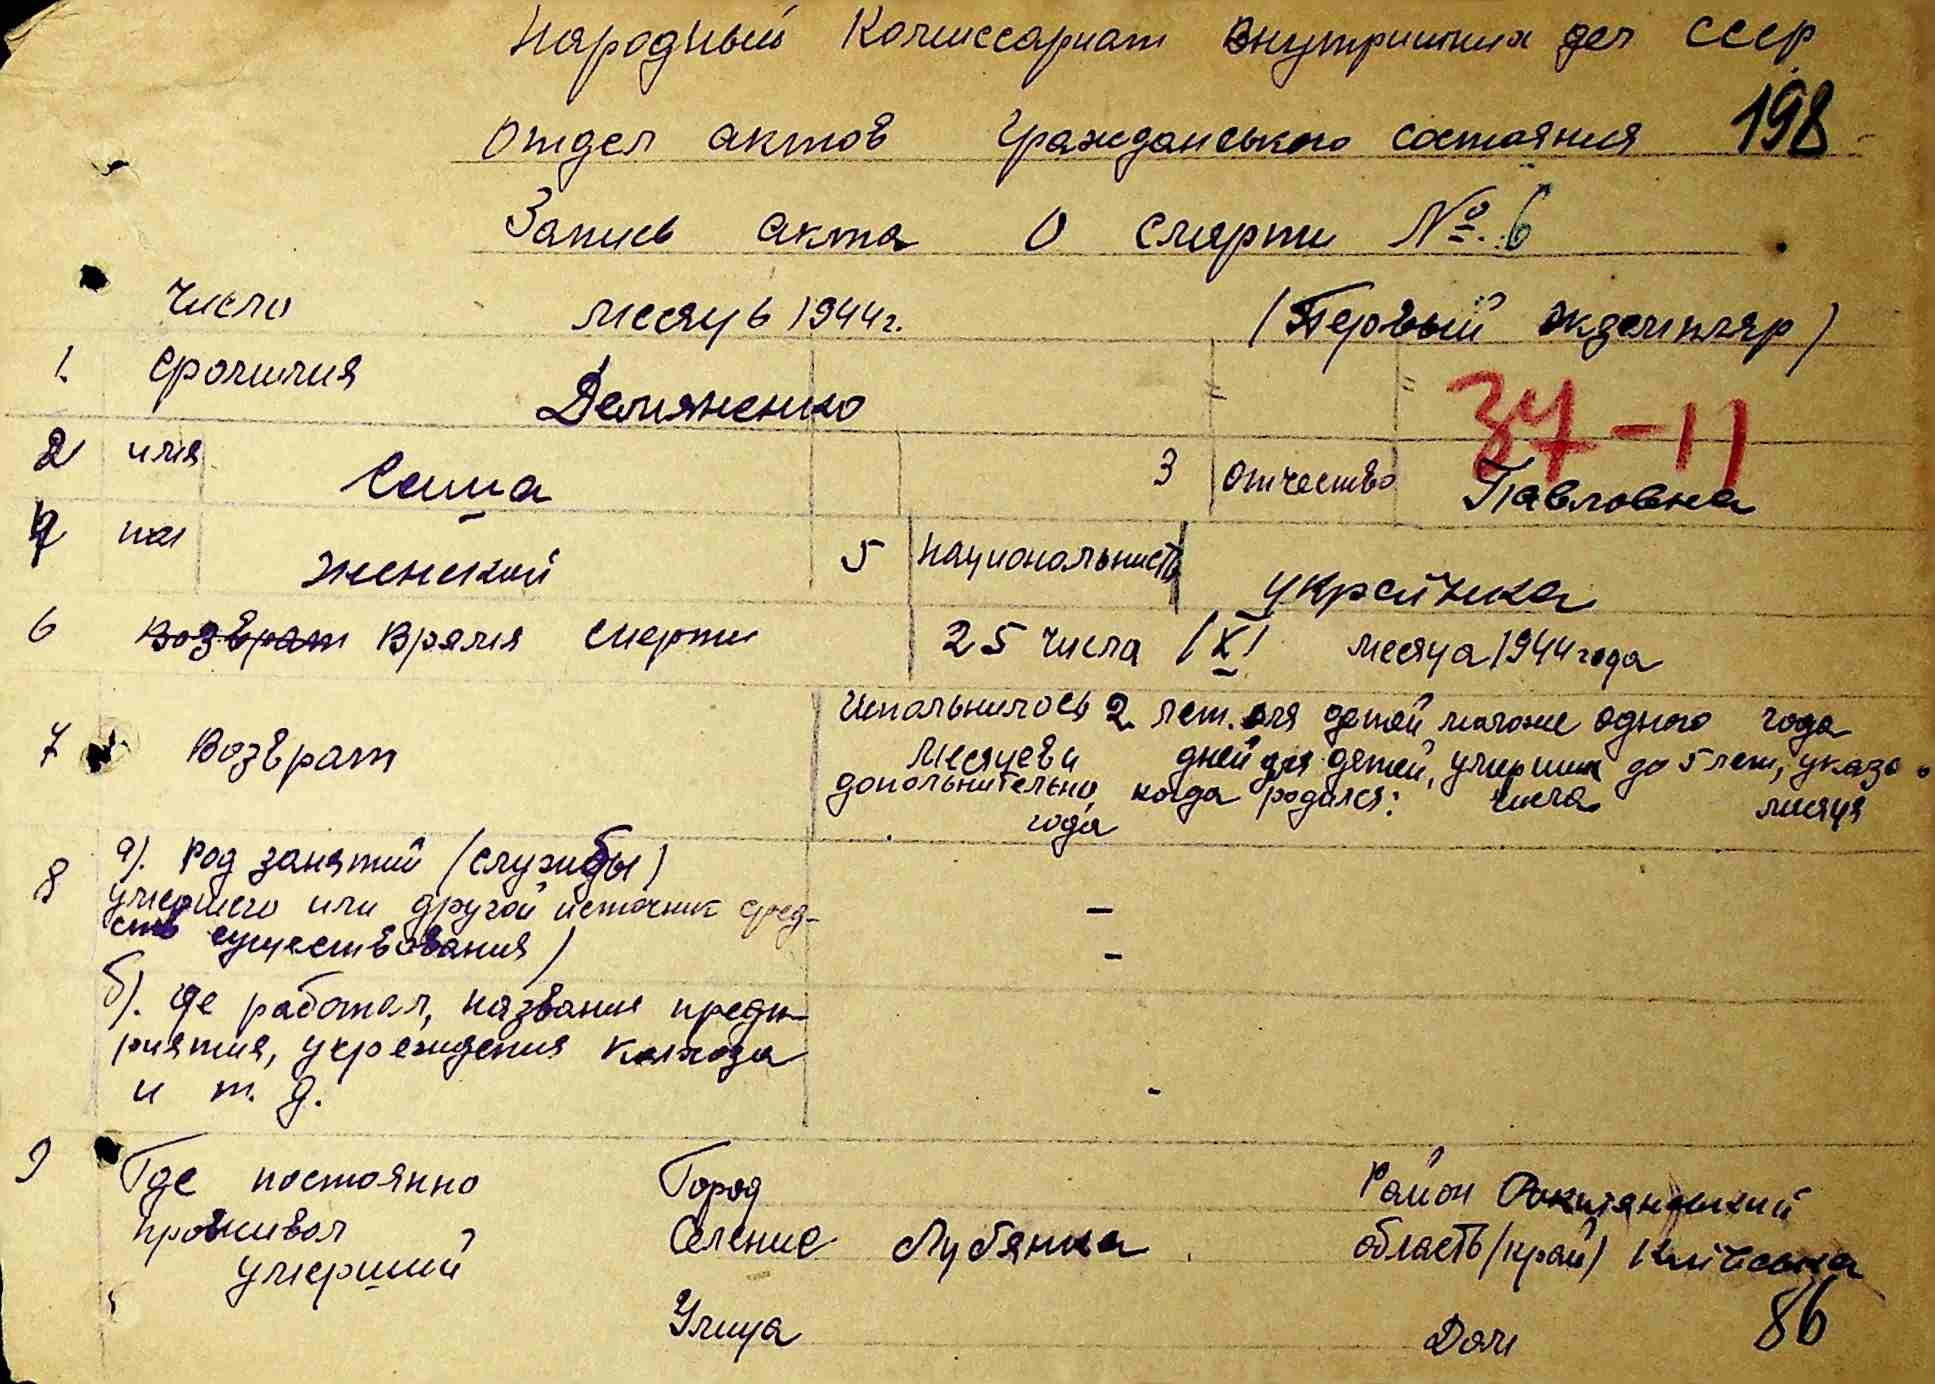 Народный Комиссариат Внутриших дел СССР
Отдел актов Гражданського состояния 198
Запись акта о смерти №: 6
Число месяць 1944 г. (Первый
1. Фамилия Демяненко
37-11
2 имя Саша 3 Отчество Павловна
4 пол Женский 5 Национальность украинка
6 Возврат Время смерти 25 числа /XI месяца 1944 года
7 Возврат
Испольнилось 2 лет. для детей моложе одного года
месяцев и дней для детей, умерших до 5 лет, указ
допольнительно, когда родился: числа месяця
года
8 а). Род занятий (службы)
умершего или другой источник сред-
ств существования)
-
-
б). Где работал, название предп-
риятия, учреждения колхоза
и т. д.
-
9 Где постоянно Город Район Рокитянський
проживал Селение Лубянка область (край) Київська
умерший
Улица Дом 86